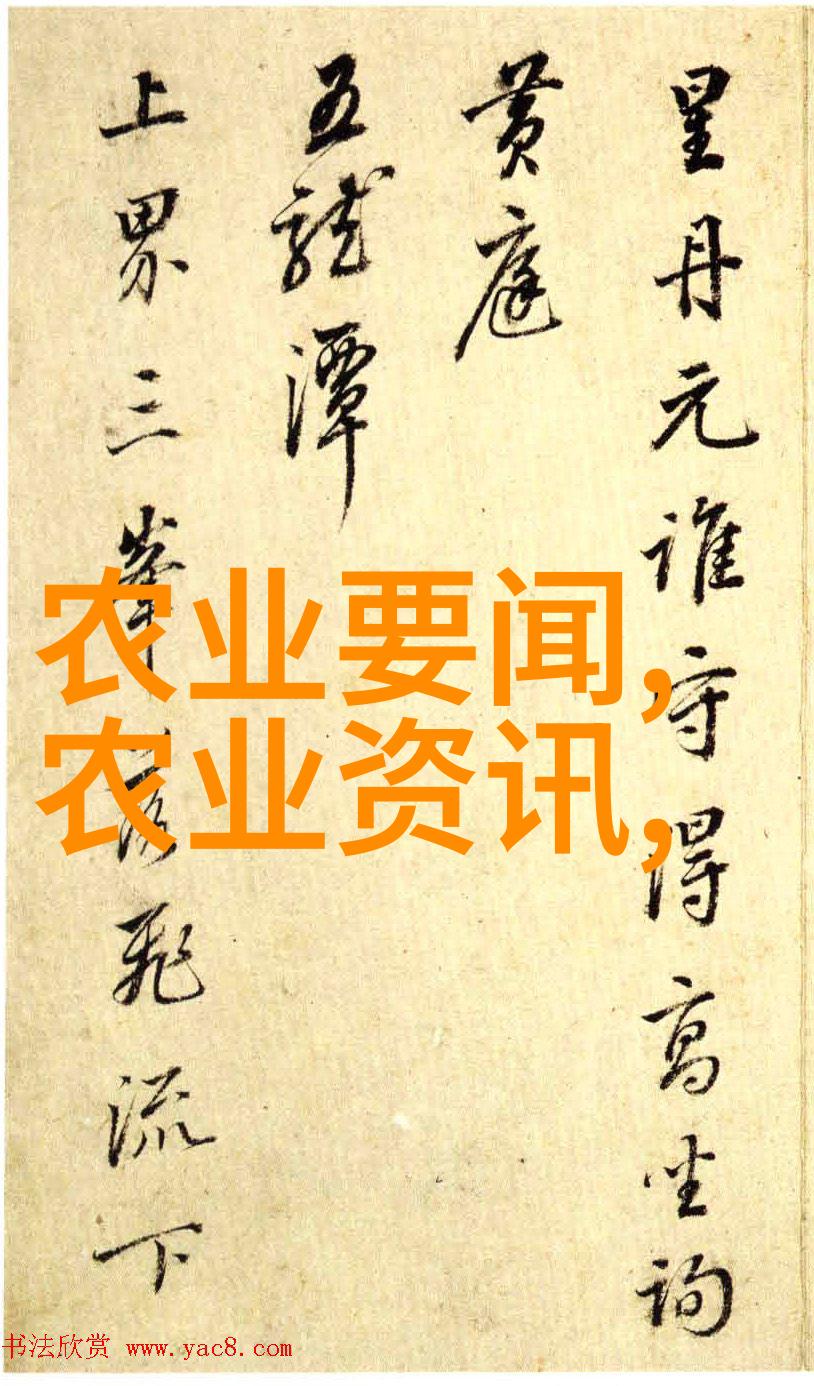 星丹元谁守得高坐询
黄庭
五龍潭
上界三峯落飛流下
农业要闻,
农业资讯,
书法欣赏 www.yac8.com